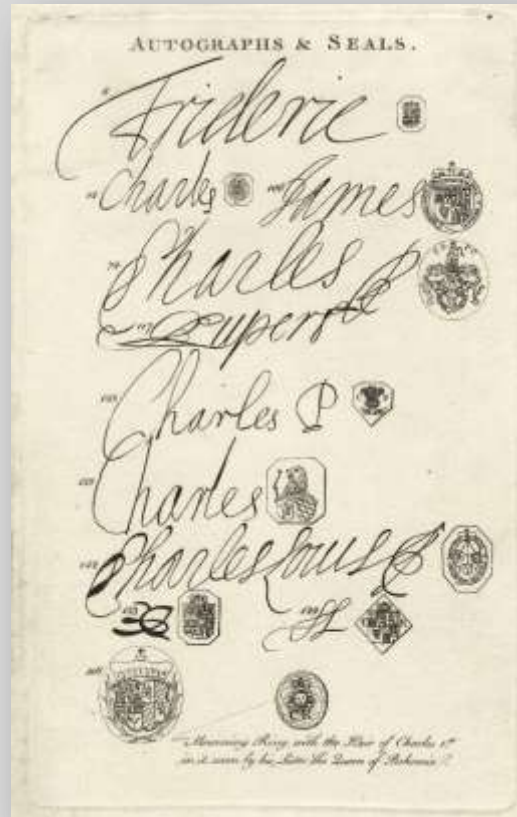 AUTOGRAPHS & SEALS.
Frideric
Charles James
Charles P
Rupert
Charles P
Charles
Charles Louis
Mourning Ring with the Hair of Charles 1st
in it worn by his Sister the Queen of Bohemia